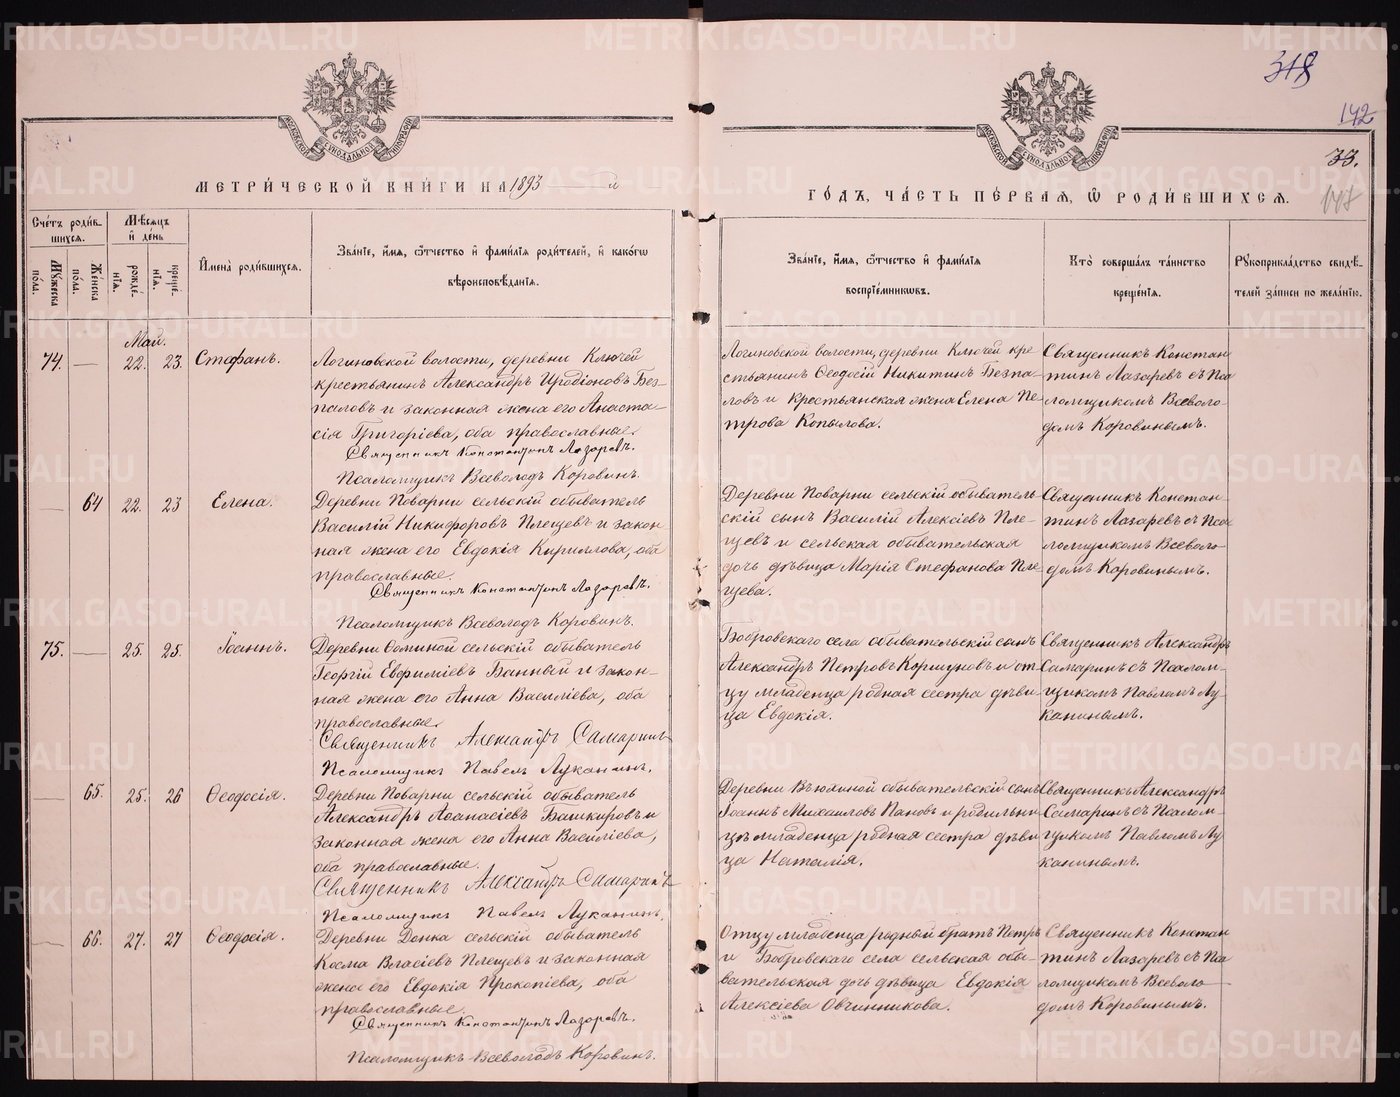 318
142
33.
147
МОСКОВСКОЙ СѴНОДАЛЬНОЙ ТИПОГРАФІИ
МОСКОВСКОЙ СѴНОДАЛЬНОЙ ТИПОГРАФІИ
МЕТРИ́ЧЕСКОЙ КНИ́ГИ НА 1893 й
ГО́ДЪ, ЧА́СТЬ ПЕ́РВАЯ, Ѡ РОДИ́ВШИХСЯ.
Счётъ роди́вшихся.
Му́жеска по́ла.
Же́нска по́ла.
Мѣ́сяцъ и҆ де́нь
рожде́нїя.
креще́нїя.
И҆мена̀ роди́вшихся.
Зва́нїе, и҆́мя, ѻ҆́тчество и҆ фами́лїя роди́телей, и҆ како́гѡ
вѣроисповѣ́данїя.
Зва́нїе, и҆́мя, ѻ҆́тчество и҆ фами́лїя
воспрїе́мникѡвъ.
Кто̀ соверша́лъ та́инство
креще́нїя.
Рукоприкла́дство свидѣ́-
телей за́писи по жела́нїю.
Май.
74. — 22. 23. Стефанъ.
Логиновской волости, деревни Ключей
крестьянинъ Александръ Иродіоновъ Без-
паловъ и законная жена его Анаста-
сія Григоріева, оба православные.
Священникъ Константинъ Лазаревъ.
Псаломщикъ Всеволодъ Коровинъ.
Логиновской волости, деревни Ключей кре-
стьянинъ Ѳеодосій Никитинъ Безпа-
ловъ и крестьянская жена Елена Пе-
трова Копылова.
Священникъ Констан-
тинъ Лазаревъ съ Пса-
ломщикомъ Всеволо-
домъ Коровинымъ.
— 64 22. 23 Елена.
Деревни Поварни сельскій обыватель
Василій Никифоровъ Плещевъ и закон-
ная жена его Евдокія Кириллова, оба
православные.
Священникъ Константинъ Лазаревъ.
Псаломщикъ Всеволодъ Коровинъ.
Деревни Поварни сельскій обыватель-
скій сынъ Василій Алексіевъ Пле-
щевъ и сельская обывательская
дочь дѣвица Марія Стефанова Пле-
щева.
Священникъ Констан-
тинъ Лазаревъ съ Пса-
ломщикомъ Всеволо-
домъ Коровинымъ.
75. — 25. 25. Іоаннъ.
Деревни Ѳоминой сельскій обыватель
Георгій Евфиміевъ Банный и закон-
ная жена его Анна Василіева, оба
православные.
Священникъ Александръ Самаринъ
Псаломщикъ Павелъ Луканинъ.
Бобровскаго села обывательскій сынъ
Александръ Петровъ Коршуновъ и от-
цу младенца родная сестра дѣви-
ца Евдокія.
Священникъ Александръ
Самаринъ съ Псалом-
щикомъ Павломъ Лу-
канинымъ.
— 65. 25. 26 Ѳеодосія.
Деревни Поварни сельскій обыватель
Александръ Аѳанасіевъ Башкировъ и
законная жена его Анна Василіева,
оба православные.
Священникъ Александръ Самаринъ
Псаломщикъ Павелъ Луканинъ.
Деревни Вьюхиной обывательскій сынъ
Іоаннъ Михаиловъ Пановъ и родильни-
цѣ младенца родная сестра дѣви-
ца Наталія.
Священникъ Александръ
Самаринъ съ Псалом-
щикомъ Павломъ Лу-
канинымъ.
— 66. 27. 27 Ѳеодосія.
Деревни Донка сельскій обыватель
Косма Власіевъ Плещевъ и законная
жена его Евдокія Прокопіева, оба
православные.
Священникъ Константинъ Лазаревъ.
Псаломщикъ Всеволодъ Коровинъ.
Отцу младенца родный братъ Петръ
и Бобровскаго села сельская обы-
вательская дочь дѣвица Евдокія
Алексіева Овчинникова.
Священникъ Констан-
тинъ Лазаревъ съ Пса-
ломщикомъ Всеволо-
домъ Коровинымъ.
METRIKI.GASO-URAL.RU